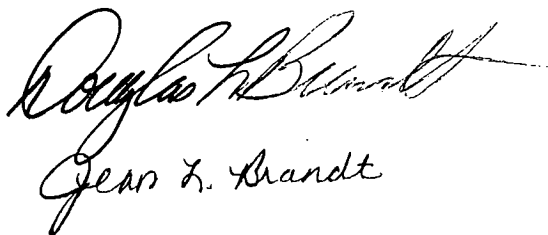 Douglas L Brandt
Jean L. Brandt